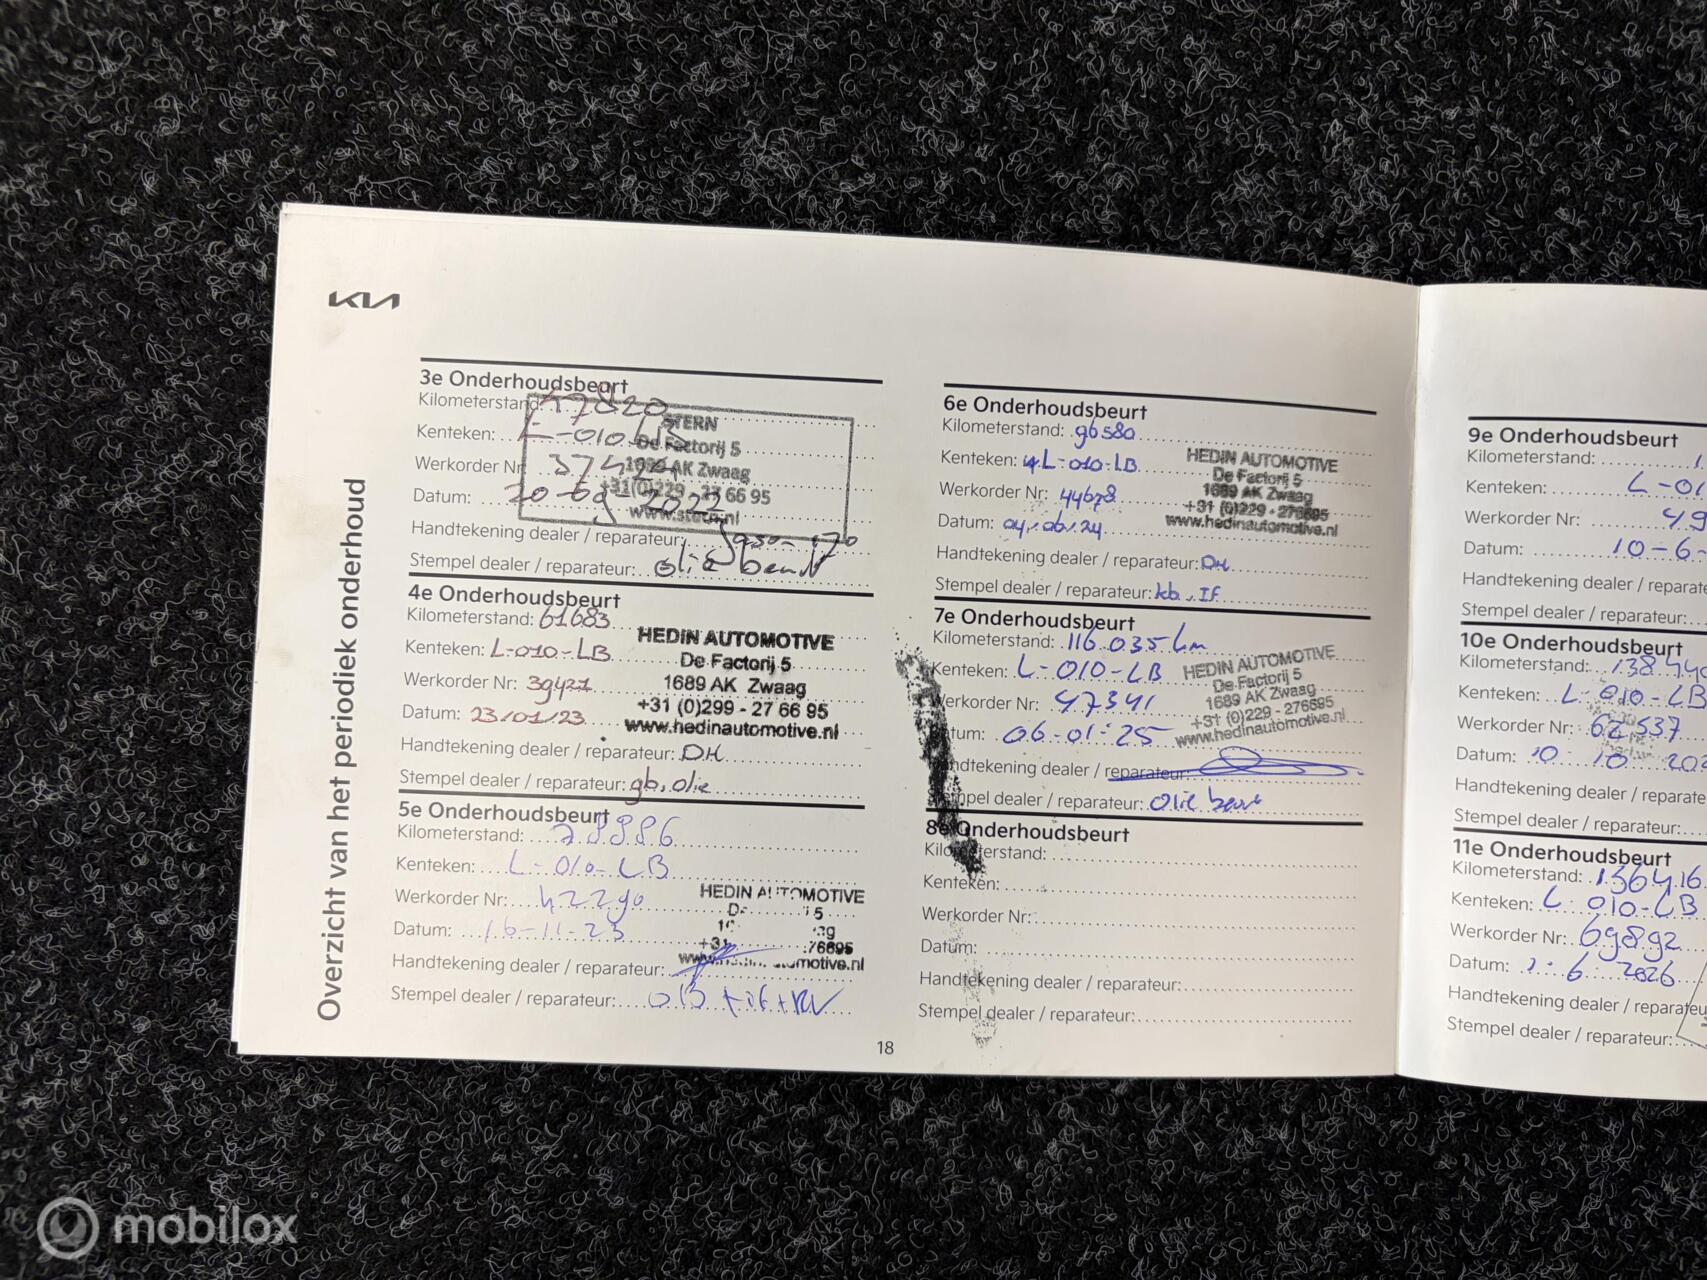 KIA
Overzicht van het periodiek onderhoud
3e Onderhoudsbeurt
Kilometerstand: 47820
Kenteken: L-010-LB
Werkorder Nr:
Datum: 2022
Handtekening dealer / reparateur:
Stempel dealer / reparateur: olie beurt
STERN
De Factorij 5
1689 AK Zwaag
+31(0)229 - 27 66 95
www.stern.nl
4e Onderhoudsbeurt
Kilometerstand: 61683
Kenteken: L-010-LB
Werkorder Nr: 39421
Datum: 23/01/23
Handtekening dealer / reparateur: DH
Stempel dealer / reparateur: gb, olie
HEDIN AUTOMOTIVE
De Factorij 5
1689 AK Zwaag
+31 (0)299 - 27 66 95
www.hedinautomotive.nl
5e Onderhoudsbeurt
Kilometerstand: 78886
Kenteken: L-010-LB
Werkorder Nr: 42290
Datum: 16-11-23
Handtekening dealer / reparateur:
Stempel dealer / reparateur:
HEDIN AUTOMOTIVE
6e Onderhoudsbeurt
Kilometerstand: 96580
Kenteken: L-010-LB
Werkorder Nr: 44678
Datum: 04.06.24
Handtekening dealer / reparateur: DH
Stempel dealer / reparateur: kb, IF
HEDIN AUTOMOTIVE
De Factorij 5
1689 AK Zwaag
+31 (0)229 - 276695
www.hedinautomotive.nl
7e Onderhoudsbeurt
Kilometerstand: 116.035 km
Kenteken: L-010-LB
Werkorder Nr: 47341
Datum: 06-01-25
Handtekening dealer / reparateur:
Stempel dealer / reparateur: olie beurt
HEDIN AUTOMOTIVE
De Factorij 5
1689 AK Zwaag
+31 (0)229 - 276695
www.hedinautomotive.nl
8e Onderhoudsbeurt
Kilometerstand:
Kenteken:
Werkorder Nr:
Datum:
Handtekening dealer / reparateur:
Stempel dealer / reparateur:
18
9e Onderhoudsbeurt
Kilometerstand: 1
Kenteken: L-01
Werkorder Nr: 49
Datum: 10-6-
Handtekening dealer / reparate
Stempel dealer / reparateur:
10e Onderhoudsbeurt
Kilometerstand: 138440
Kenteken: L-010-LB
Werkorder Nr: 62537
Datum: 10 10 202
Handtekening dealer / reparate
Stempel dealer / reparateur:
11e Onderhoudsbeurt
Kilometerstand: 136416
Kenteken: L-010-LB
Werkorder Nr: 69892
Datum: 6 2026
Handtekening dealer / reparateu
Stempel dealer / reparateur:
mobilox